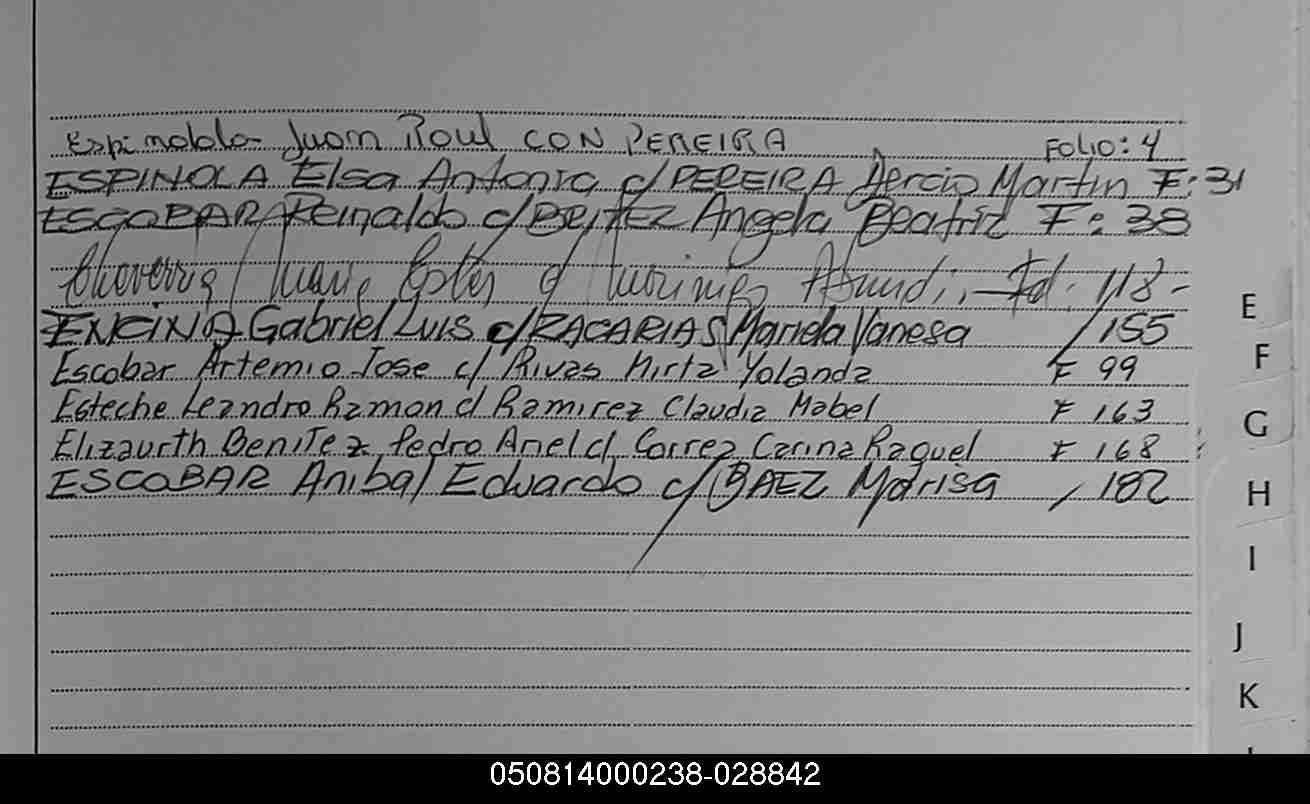 Espinoble Juan Raul CON PEREIRA Folio: 4
ESPINOLA Elsa Antonia c/ PEREIRA Dercio Martin F: 31
ESCOBAR Reinaldo c/ BEITEZ Angela Beatriz F: 38
118-
ENCINA Gabriel Luis c/ ZACARIAS Mariela Vanesa / 155
Escobar Artemio Jose c/ Rivas Mirta Yolanda F 99
Esteche Leandro Ramon c/ Ramirez Claudia Mabel F 163
Elizaurth Benitez Pedro Ariel c/ Correa Carina Raquel F 168
ESCOBAR Anibal Eduardo c/ BAEZ Marisa / 182
E
F
G
H
I
J
K
050814000238-028842